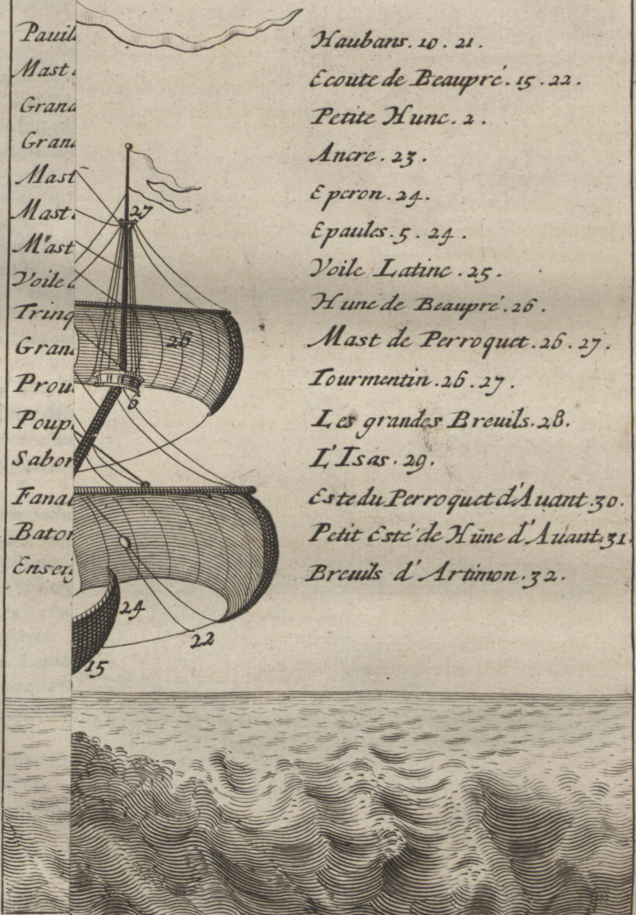 Pavil
Mast
Grand
Gran
Mast
Mast
Mast
Voile
Trinq
Gran
Prou
Poup
Sabor
Fanal
Baton
Enseig
27
26
6
24
22
15
Haubans. 10. 21.
Ecoute de Beaupré. 15. 22.
Petite Hune. 2.
Ancre. 23.
Eperon. 24.
Epaules. 5. 24.
Voile Latine. 25.
Hune de Beaupré. 26.
Mast de Perroquet. 26. 27.
Tourmentin. 26. 27.
Les grandes Breuils. 28.
L'Isas. 29.
Este du Perroquet d'Auant. 30.
Petit Esté de Hune d'Auant. 31.
Breuils d'Artimon. 32.